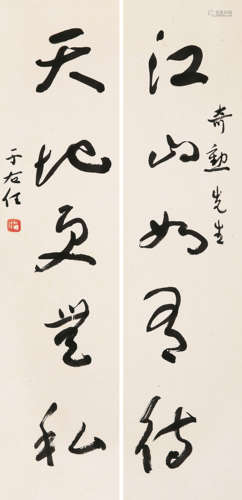 江山如有待
奇勲先生
天地更無私
于右任